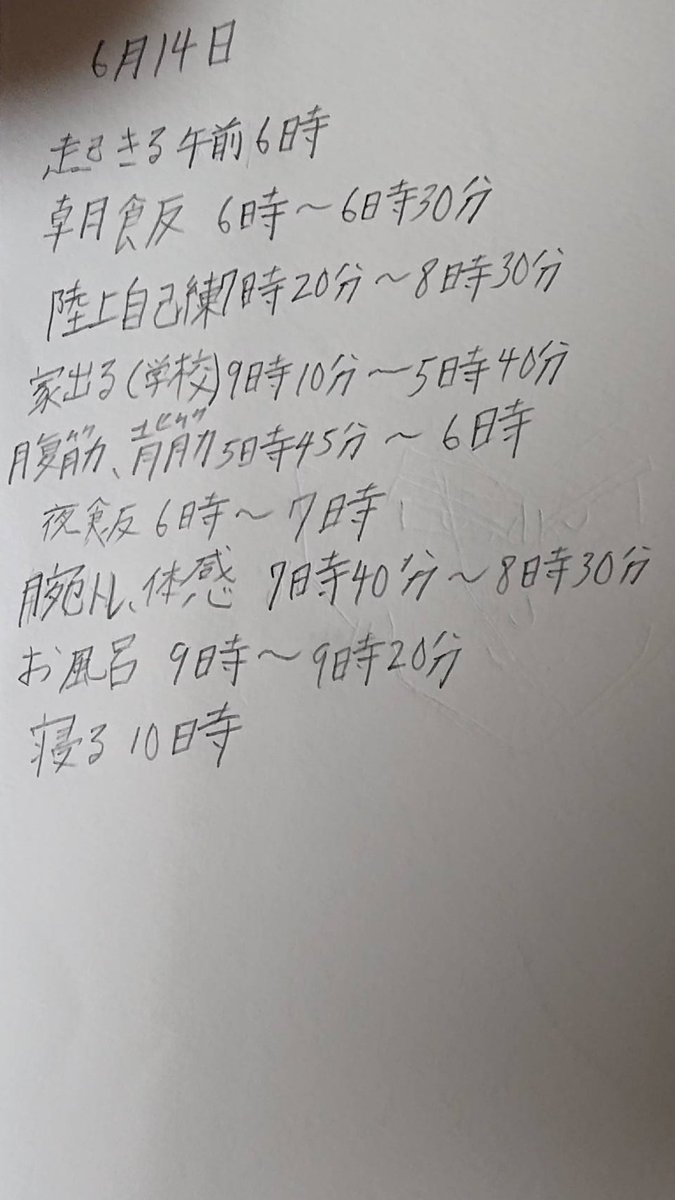 6月14日
起きる午前6時
朝食反 6時～6時30分
陸上自己練7時20分～8時30分
家出る(学校)9時10分～5時40分
腹筋、背筋5時45分～6時
夜飯6時～7時
腕トレ、体感 7時40分～8時30分
お風呂 9時～9時20分
寝る10時